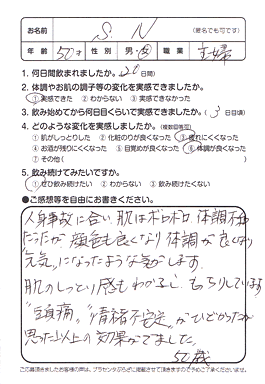 お名前 S N (匿名でも可です)
年齢 50才 性別 男・女 職業 主婦
1. 何日間飲まれましたか。(20日間)
2. 体調やお肌の調子等の変化を実感できましたか。
①実感できた ②わからない ③実感できなかった
3. 飲み始めてから何日目くらいで実感できましたか。(3日目頃)
4. どのような変化を実感しましたか。(複数回答可)
①肌がしっとりした ②化粧のりが良くなった ③疲れにくくなった
④お酒が残りにくくなった ⑤目覚めが良くなった ⑥体調が良くなった
⑦その他(
5. 飲み続けてみたいですか。
①ぜひ飲み続けたい ②わからない ③飲み続けたくない
●ご感想等を自由にお書きください。
人身事故に合い 肌はボロボロ、体調不良
だったが 顔色も良くなり 体調が良くなり
"元気"になったような気がします。
肌のしっとり感もわかるし、もちりしています
"頭痛" "情緒不安定"がひどかったが
思った以上の効果がでました。
50歳
ご応募頂きましたお客様の声は、プラセンタぷらざに掲載させて頂きますので予めご了承くださいませ。